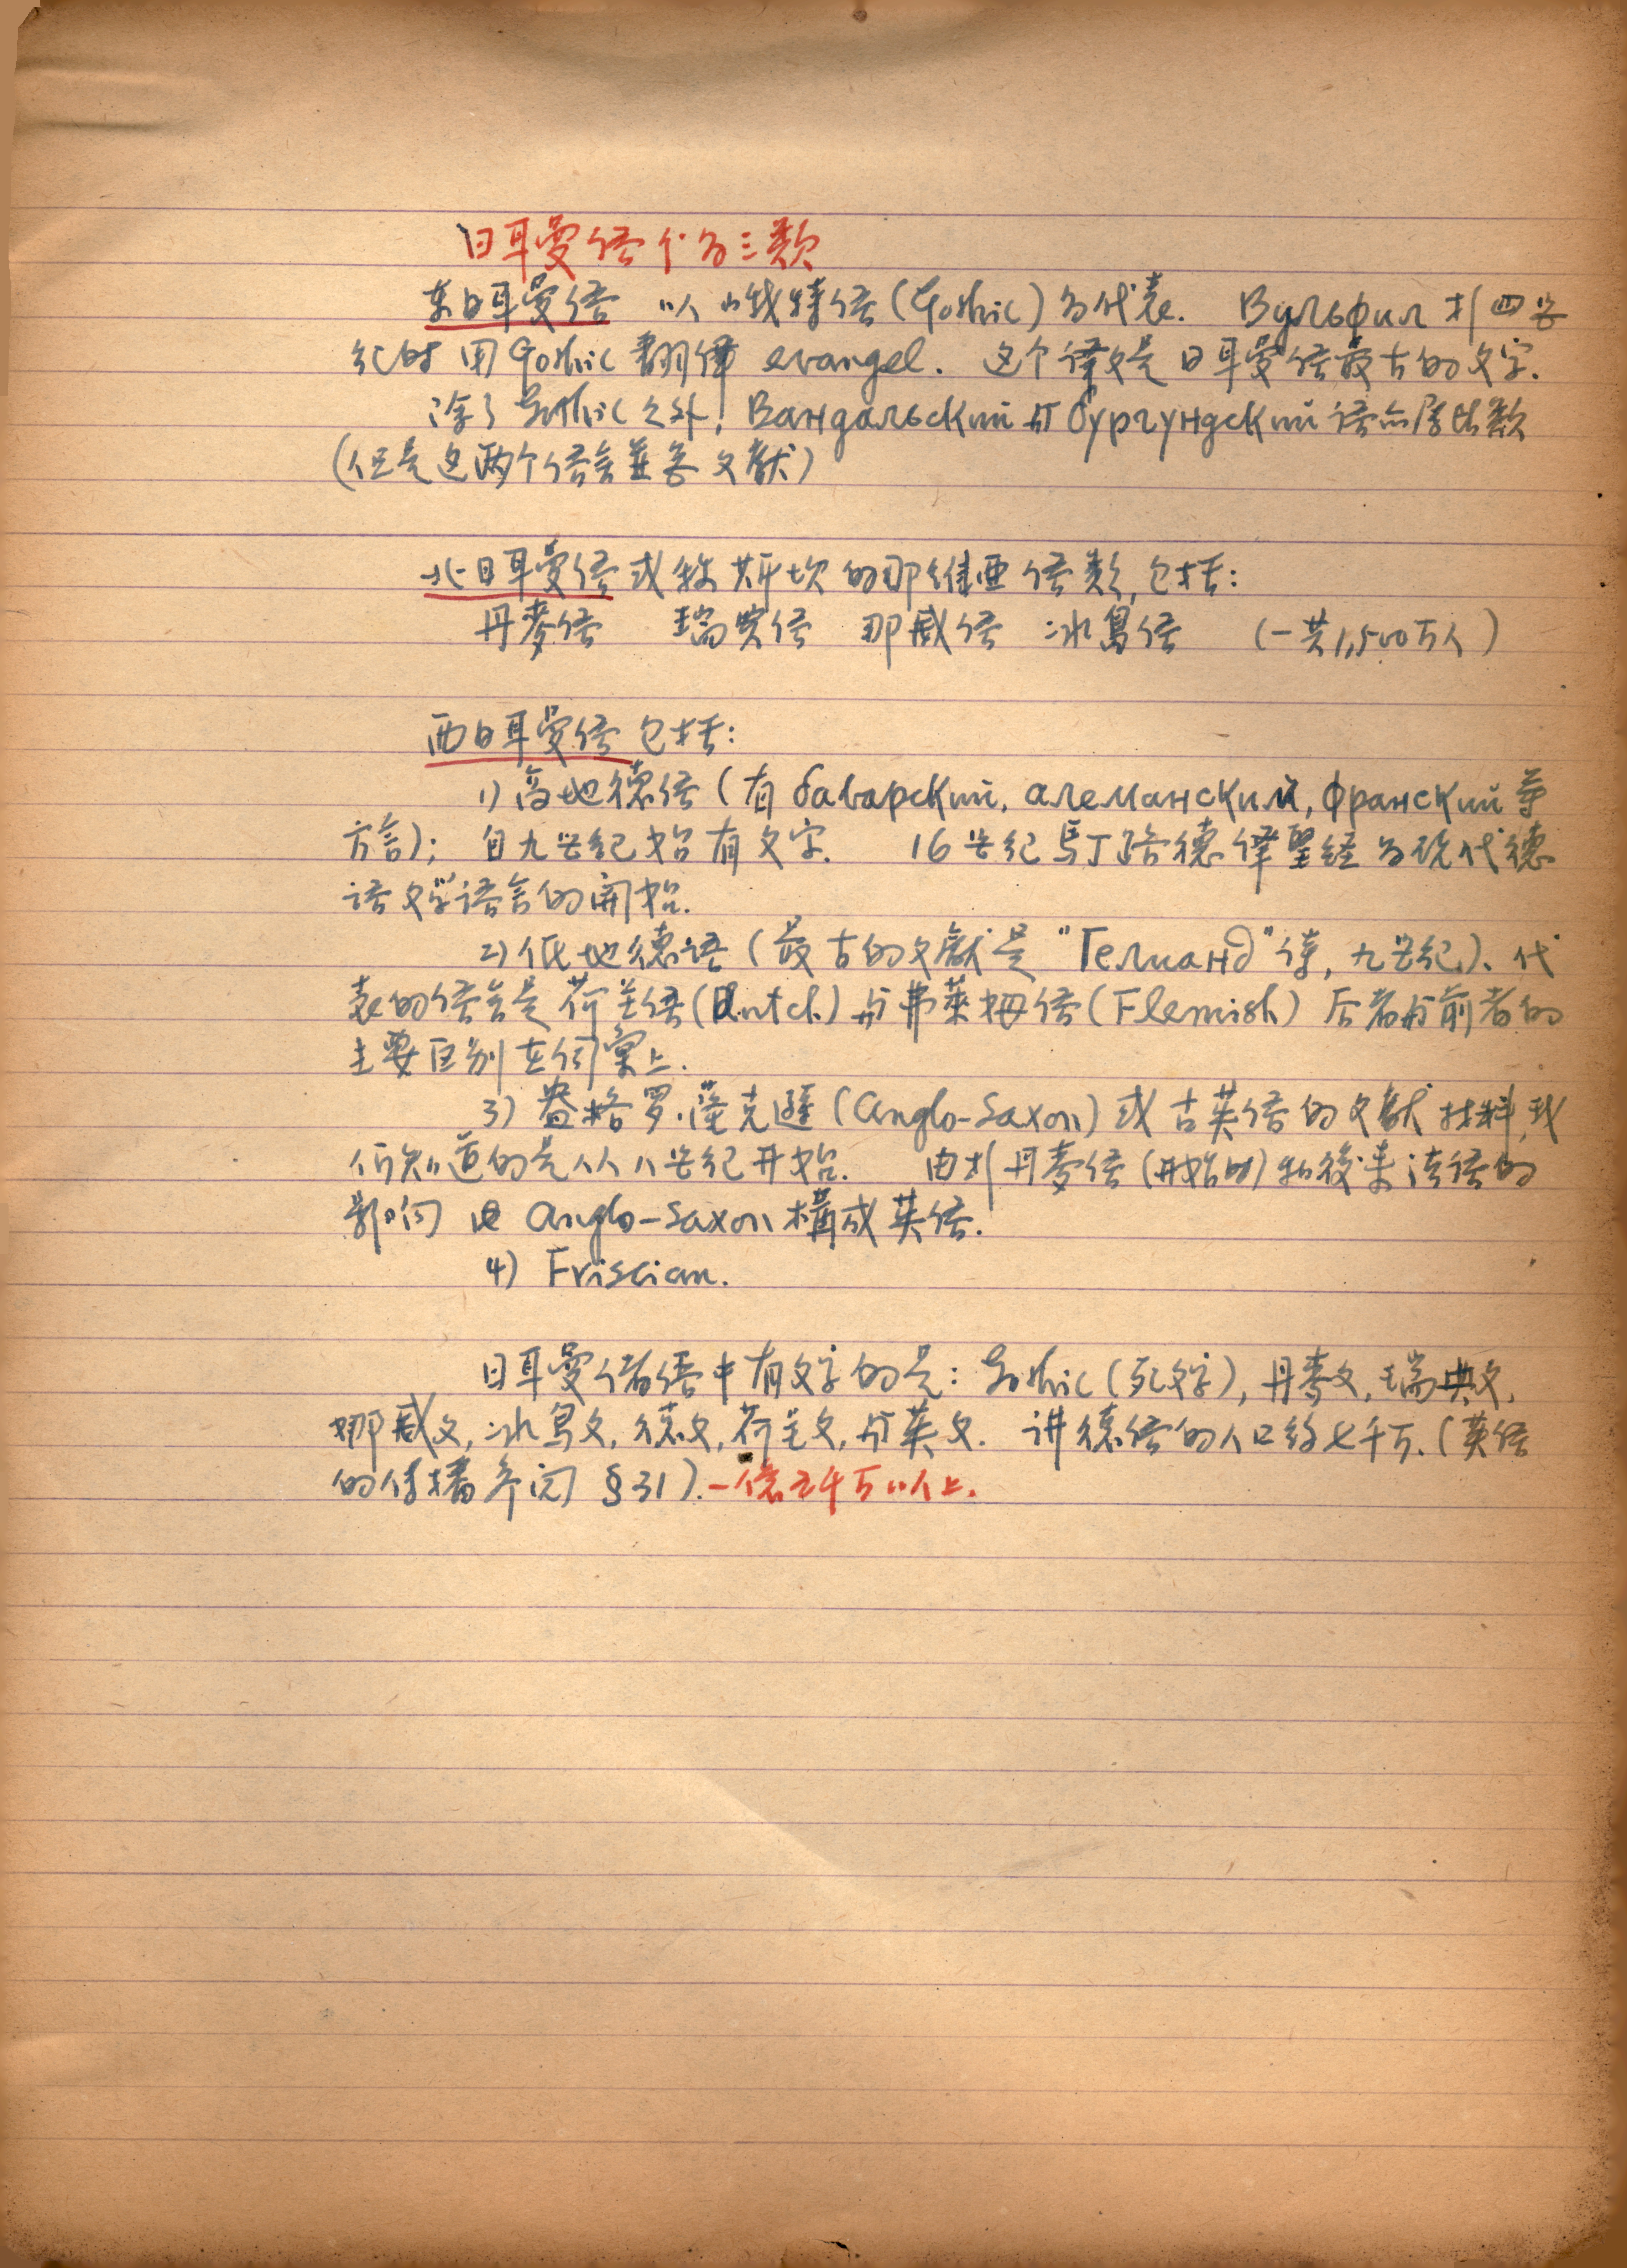 日耳曼语分为三类
东日耳曼语 以峨特语(Gothic)为代表. Вульфил 於四世
纪时用Gothic翻译 evangel. 这个译文是日耳曼语最古的文字.
除了Gothic之外, Вандальский 与 бургундский 语亦属此类
(但是这两个语言並無文献)
北日耳曼语或称斯坎的那维亚语类,包括:
丹麥语 瑞典语 那威语 冰島语 (一共1,500万人)
西日耳曼语包括:
1)高地德语(有баварский, алеманский, франский等
方言); 自九世纪始有文字. 16世纪馬丁路德譯聖经为现代德
语文学语言的開始.
2)低地德语(最古的文献是"Гелианд"诗,九世纪)、代
表的语言是荷兰语(Dutch)与弗萊姆语(Flemish) 后者与前者的
主要区别在词彙上.
3)盎格罗·薩克遜(Anglo-Saxon)或古英语的文献材料,我
们知道的是从八世纪开始. 由於丹麥语(开始时)和後来法语的
影响 由Anglo-Saxon構成英语.
4) Friscian.
日耳曼诸语中有文字的是: Gothic(死文字), 丹麥文, 瑞典文,
挪威文, 冰島文, 德文, 荷兰文, 与英文. 讲德语的人口约七千万.(英语
的传播参阅 §31).一億五千万以上.